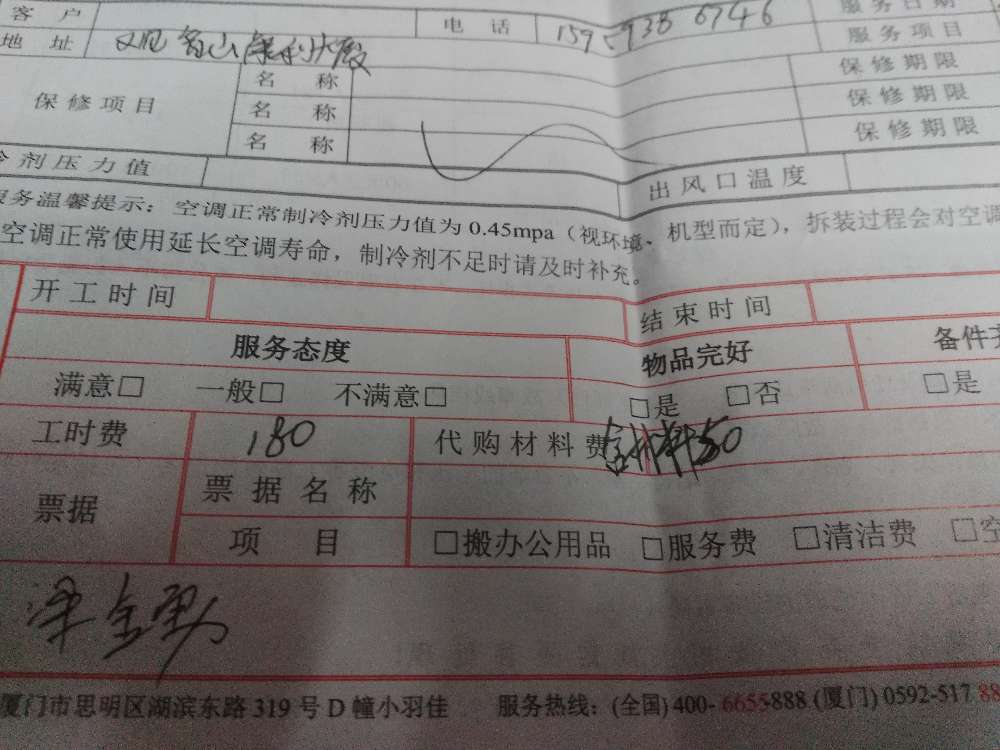 客 户 电 话 服务日期
地 址 服务项目
名 称 保修期限
保修项目 名 称 保修期限
名 称 保修期限
剂压力值 出风口温度
服务温馨提示：空调正常制冷剂压力值为 0.45mpa（视环境、机型而定），拆装过程会对空调
空调正常使用延长空调寿命，制冷剂不足时请及时补充。
开工时间 结束时间
服务态度 物品完好
满意□ 一般□ 不满意□ □是 □否 □是
工时费 180 代购材料费 50
票据 票据名称
项 目 □搬办公用品 □服务费 □清洁费
厦门市思明区湖滨东路 319 号 D 幢小羽佳 服务热线：(全国) 400- 6655-888 (厦门) 0592-517 88